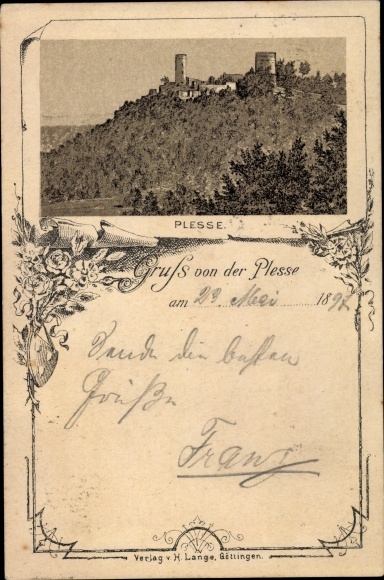 PLESSE.
Gruss von der Plesse
am 23 Mai 1897
Sende die besten
Grüße
Franz
Verlag v. H. Lange, Göttingen.